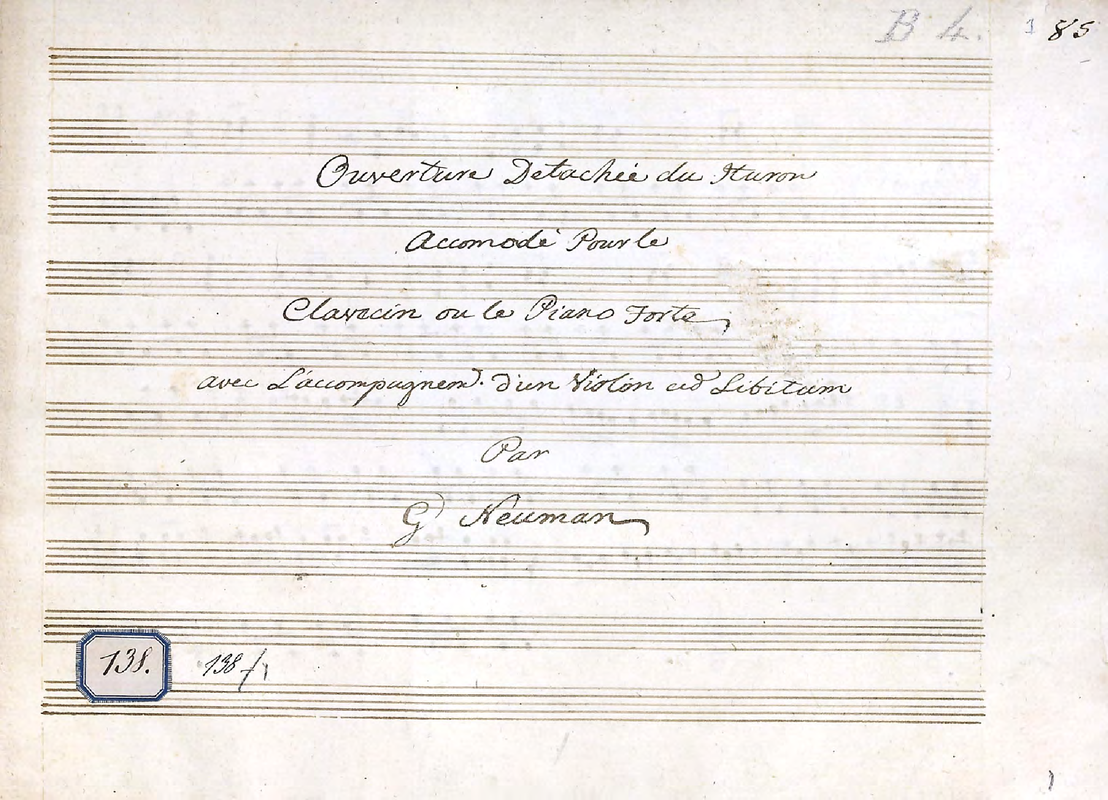 B 4. 1 85
Ouverture Detachée du Huron
Accomodé Pour le
Clavecin ou le Piano Forte
avec L'accompagnemt. d'un Violon ad Libitum
Par
G Neuman
138. 138/1